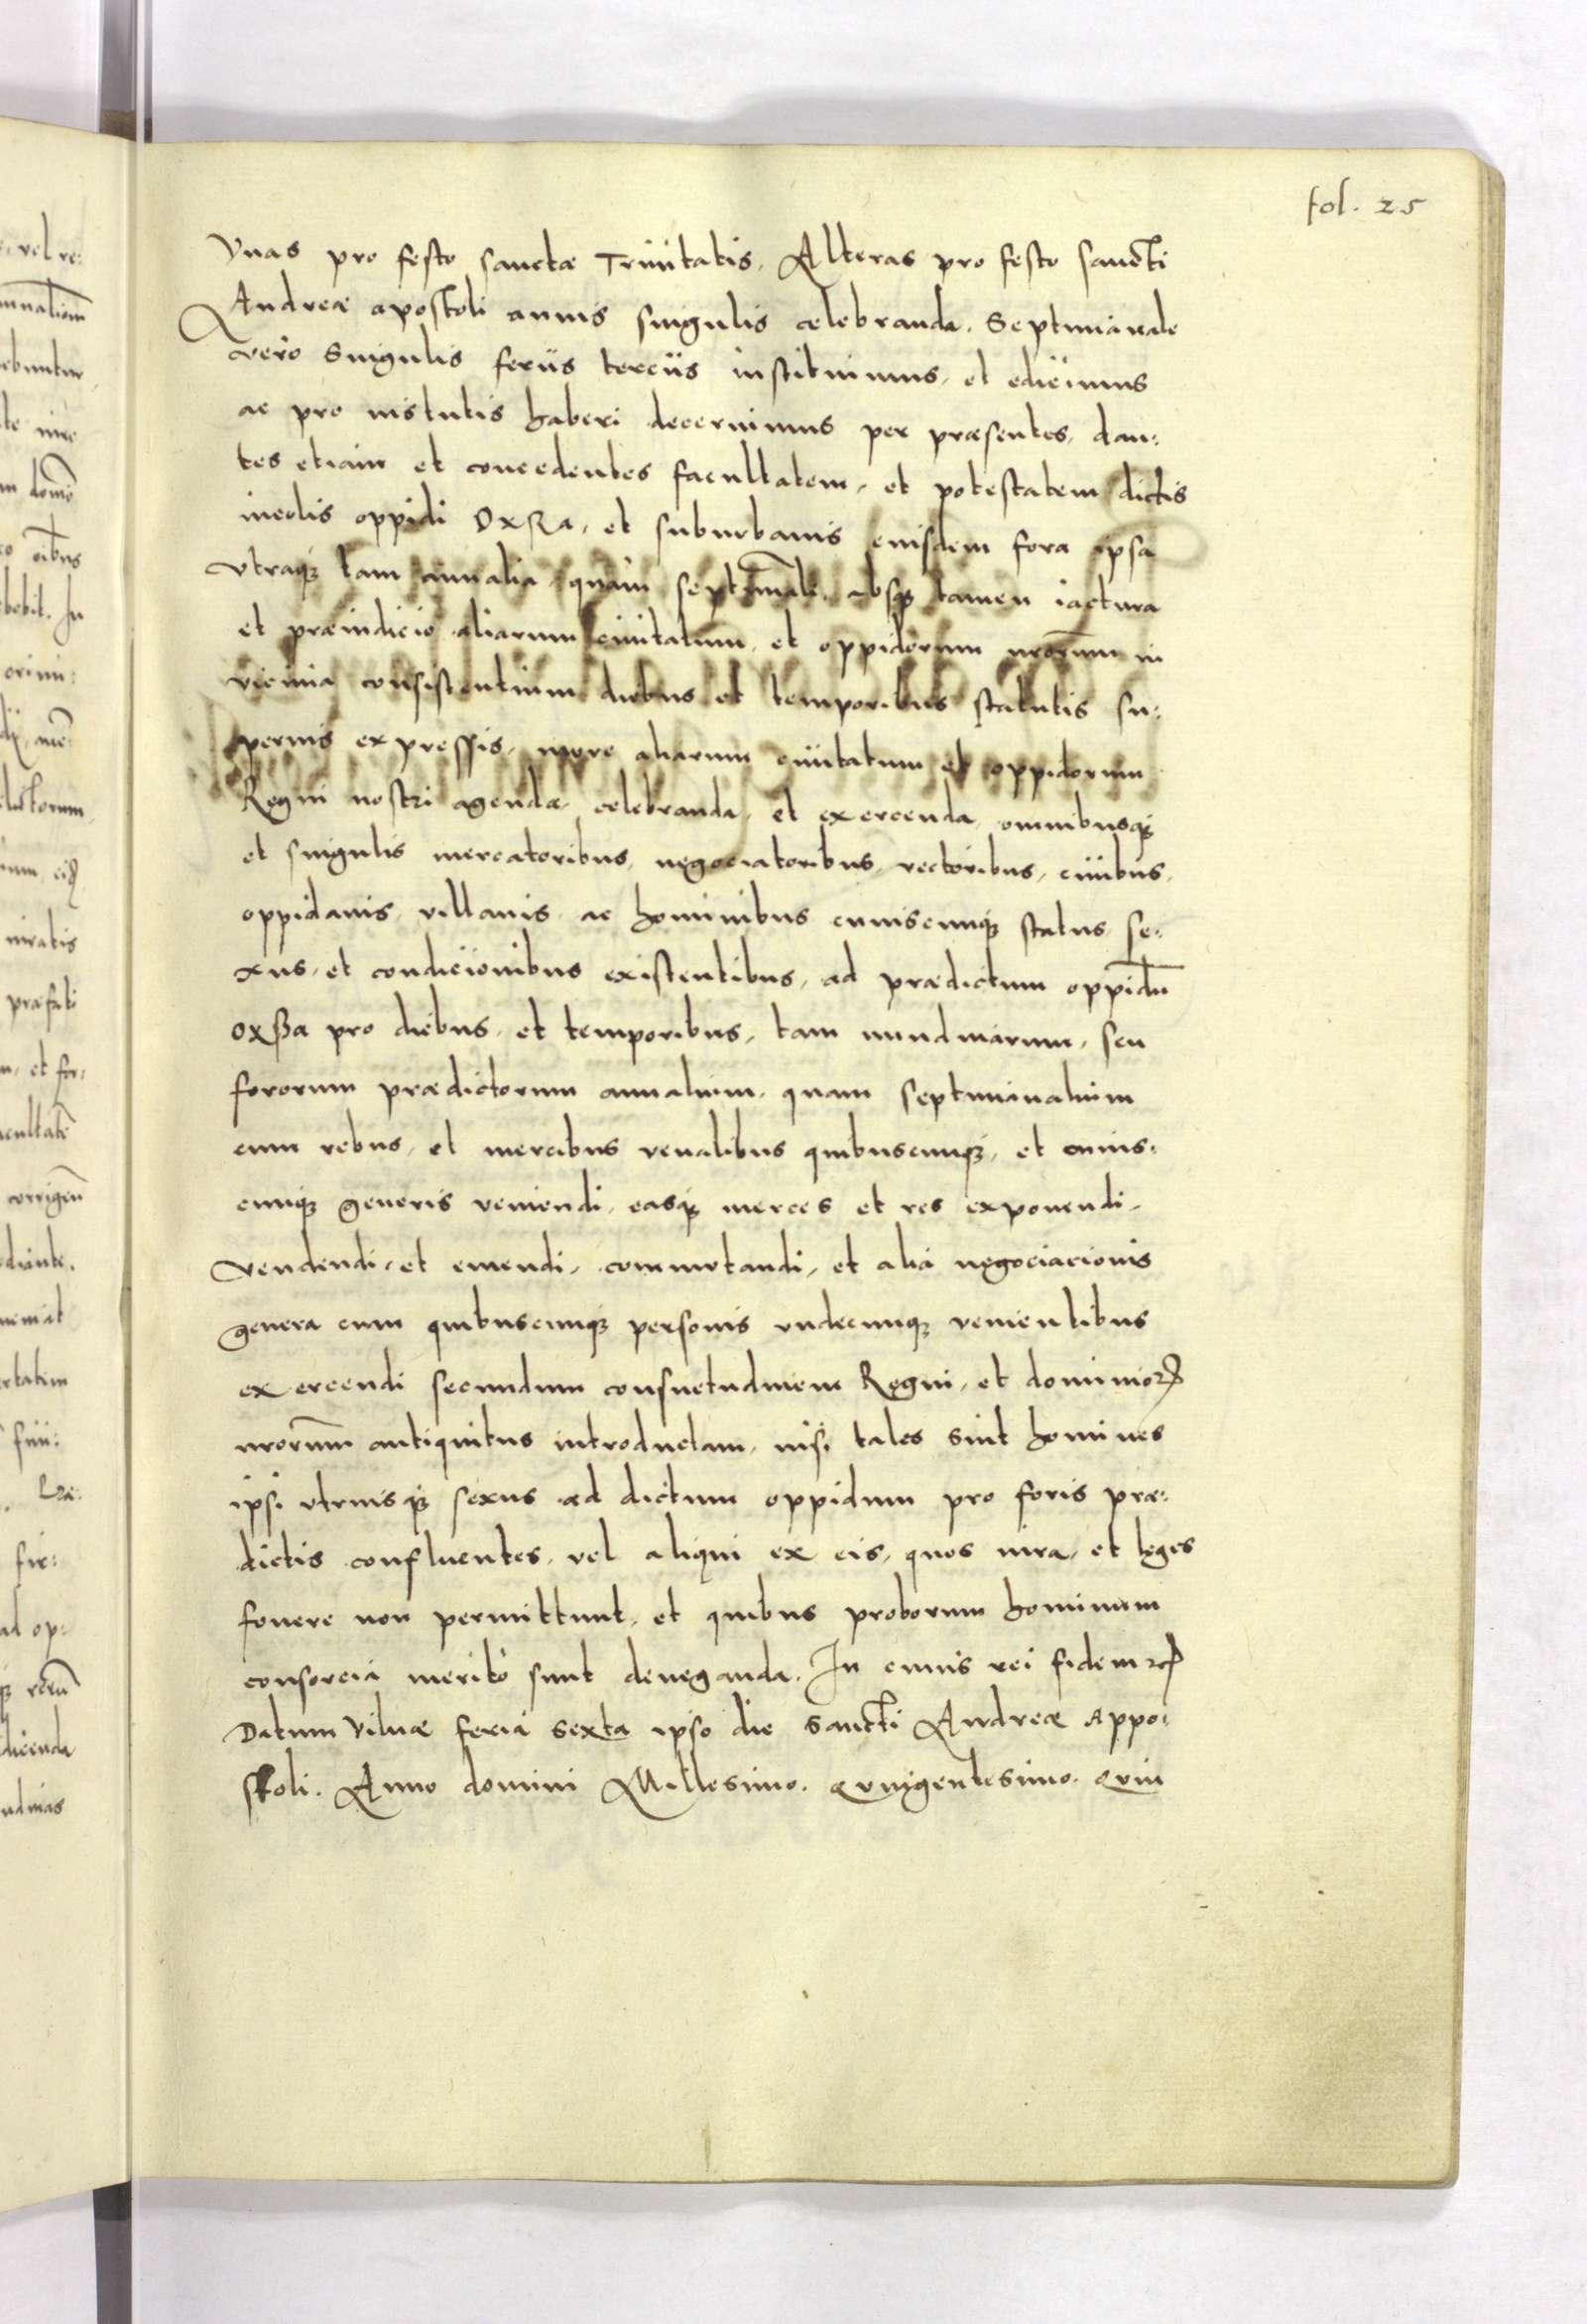 fol. 25
Vnas pro festo sanctæ Trinitatis, Alteras pro festo sancti
Andreæ apostoli annis singulis celebranda. Septimanale
vero singulis feriis terciis instituimus, et ediximus
ac pro institutis haberi decernimus per præsentes, dan:
tes etiam et concedentes facultatem, et potestatem dictis
incolis oppidi OxSza, et suburbanis eiusdem fora ipsa
vtraqꝫ tam annalia quam septĩmale, absqꝫ tamen iactura
et præiudicio aliarum ciuitatum, et oppidorum nr̃orum in
vicinia consistentium diebus et temporibus statutis su:
pernis expressis, more aliarum ciuitatum et oppidorum
Regni nostri agenda, celebranda, et exercenda, omnibusqꝫ
et singulis mercatoribus, negociatoribus, vectoribus, ciuibus,
oppidanis, villanis, ac hominibus cuiuscunqꝫ status, se:
xus, et condicionibus existentibus, ad prædictum oppidũ
Oxßa pro diebus, et temporibus, tam nundinarum, seu
fororum prædictorum annalium, quam septimanalium
cum rebus, et mercibus venalibus quibuscunqꝫ, et cuius:
cunqꝫ generis veniendi, easqꝫ merces et res exponendi,
vendendi, et emendi, commutandi, et alia negociacionis
genera cum quibuscunqꝫ personis vndecunqꝫ venientibus
exercendi secundum consuetudinem Regni, et dominioꝝ
nr̃orum antiquitus introductam, nisi tales sint homines
ipsi vtriusqꝫ sexus ad dictum oppidum pro foris præ:
dictis confluentes, vel aliqui ex eis, quos iura, et leges
fouere non permittunt, et quibus proborum hominum
consorcia merito sunt deneganda. In cuius rei fidem ꝛc
Datum Vilnæ feria sexta ipso die Sancti Andreæ Appo:
stoli. Anno domini Millesimo. Quingentesimo. Quin